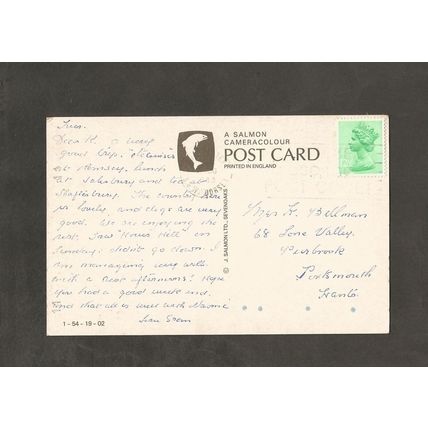 Tues.
Dear K. a very
good trip.
at Romsey, lunch
at Salisbury and tea at
Shaftesbury. The country here
is lovely, and dogs are very
good. We are enjoying the
rest. Saw "Hours Hill" on
Sunday, didn't go down. I
am managing very well
with a rest afternoons! Hope
you had a good week end,
and that all is well with
A SALMON
CAMERACOLOUR
POST CARD
PRINTED IN ENGLAND
© J. SALMON LTD., SEVENOAKS
Mrs K. Bellman
68 Lone Valley,
Purbrook
Portsmouth
Hants
1-54-19-02